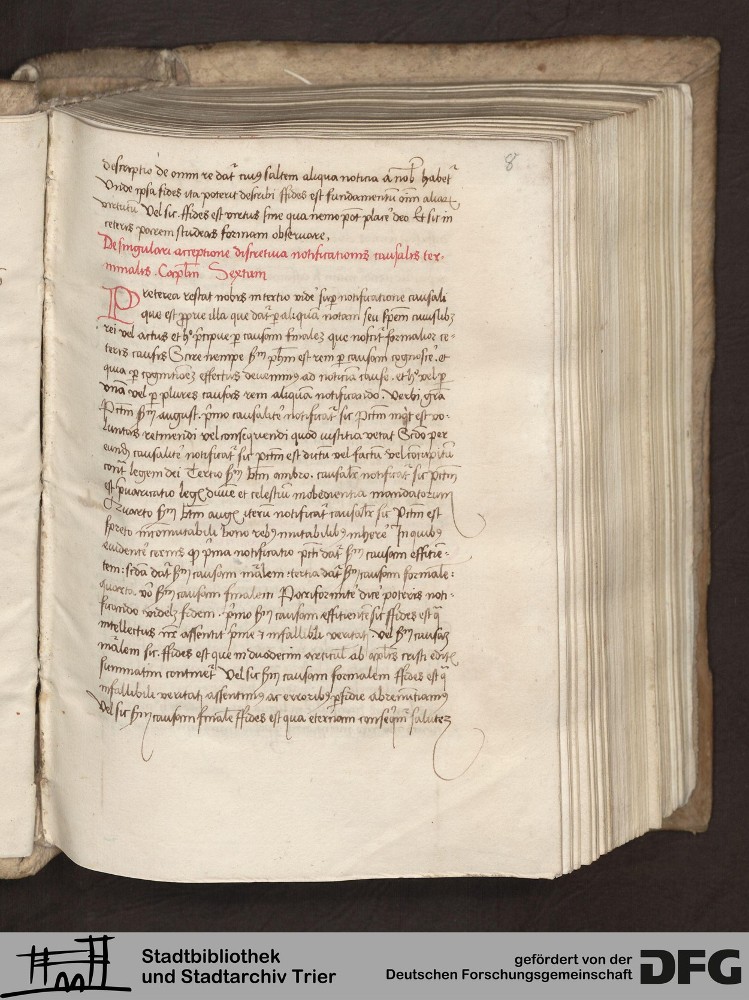 8
descriptio de omni re datur cuius saltem aliqua noticia a nobis habetur
Unde ipsa fides ita poterit describi ffides est fundamentum omnium aliarum
virtutum Vel sic. ffides est virtus sine qua nemo potest placere deo Et sic in
ceteris parem studeas formam observare.
De singulari acceptione discretiva notificationis causalis ter-
minalis. Capitulum Sextum
Preterea restat nobis in tertio videre super notificatione causali
que est proprie illa que datur per aliquam notam seu speciem cuiuslibet
rei vel actus et hoc precipue per causam finalem que noscitur formalior ce-
teris causis Scire nempe secundum philosophum est rem per causam cognoscere. et
quia per cognitionem effectus devenimus ad noticiam cause. et hoc vel per
unam vel per plures causas rem aliquam notificando. Verbi gratia
Peccatum secundum august. primo causaliter notificatur sic Peccatum inquit est vo-
luntas retinendi vel consequendi quod iusticia vetat Secundo per
eundem causaliter notificatur sic peccatum est dictum vel factum vel concupitum
contra legem dei Tertio secundum beatum ambro. causaliter notificatur sic peccatum
est prevaricatio legis divine et celestium inobedientia mandatorum
Quarto secundum beatum augustinum iterum notificatur causaliter sic Peccatum est
spreto incommutabili bono rebus mutabilibus inherere In quibus
evidenter cernis quod prima notificatio peccati datur secundum causam efficien-
tem: secunda datur secundum causam materialem: tertia datur secundum causam formalem:
quarta. vero secundum causam finalem Pariformiter dicere poteris noti-
ficando videlicet fidem. primo secundum causam efficientem sic ffides est qua
intellectus noster assentit prime et infallibili veritati. vel secundum causam
materialem sic. ffides est que in duodecim articulis ab apostolis cristi editis
summatim continetur Vel sic secundum causam formalem ffides est qua
infallibili veritati assentimus ac erroribus perfidie abrenunciamus
Vel sic secundum causam finalem ffides est qua eternam consequimur salutem
Stadtbibliothek
und Stadtarchiv Trier
gefördert von der
Deutschen Forschungsgemeinschaft
DFG